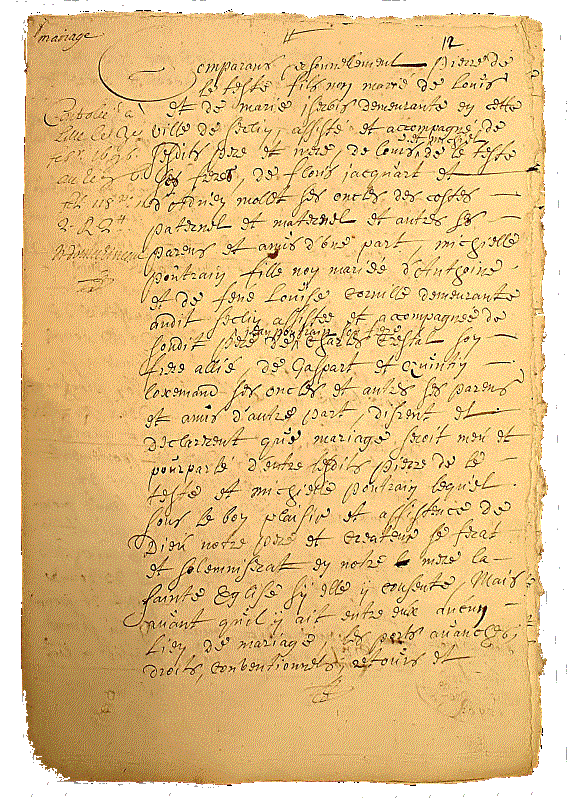 mariage
12
Comparans personnellement Pierre de
le teste fils non marié de Louis
et de marie demeurante en cette
ville de Seclin, assisté et accompagné de
sesdits pere et mere, de louis, et michiel de le teste
ses freres, de flouris jacquart et
d'Adrien molet ses oncles des costes
paternel et maternel et autres ses
parens et amis d'une part, michielle
pontrain fille non mariée d'Anthoine
et de feue Louise Cornille demeurante
audit Seclin assistee et accompagnee de
jean pontrain son frere
sondit pere de Charles Crestal son
frere allié de Gaspart et Quintin
loxemand ses oncles et autres ses parens
et amis d'autre part, disrent et
declarerent que mariage seroit meu et
pourparlé d'entre lesdits pierre de le
teste et michielle pontrain lequel
sous le bon plaisir et assistence de
Dieu notre pere et Createur se ferat
et solemniserat en notre mere la
sainte Eglise sy elle y consente, Mais
avant qu'il y ait entre eux aucun
Lien de mariage, les ports avanches,
droits, conventionnels, retours et